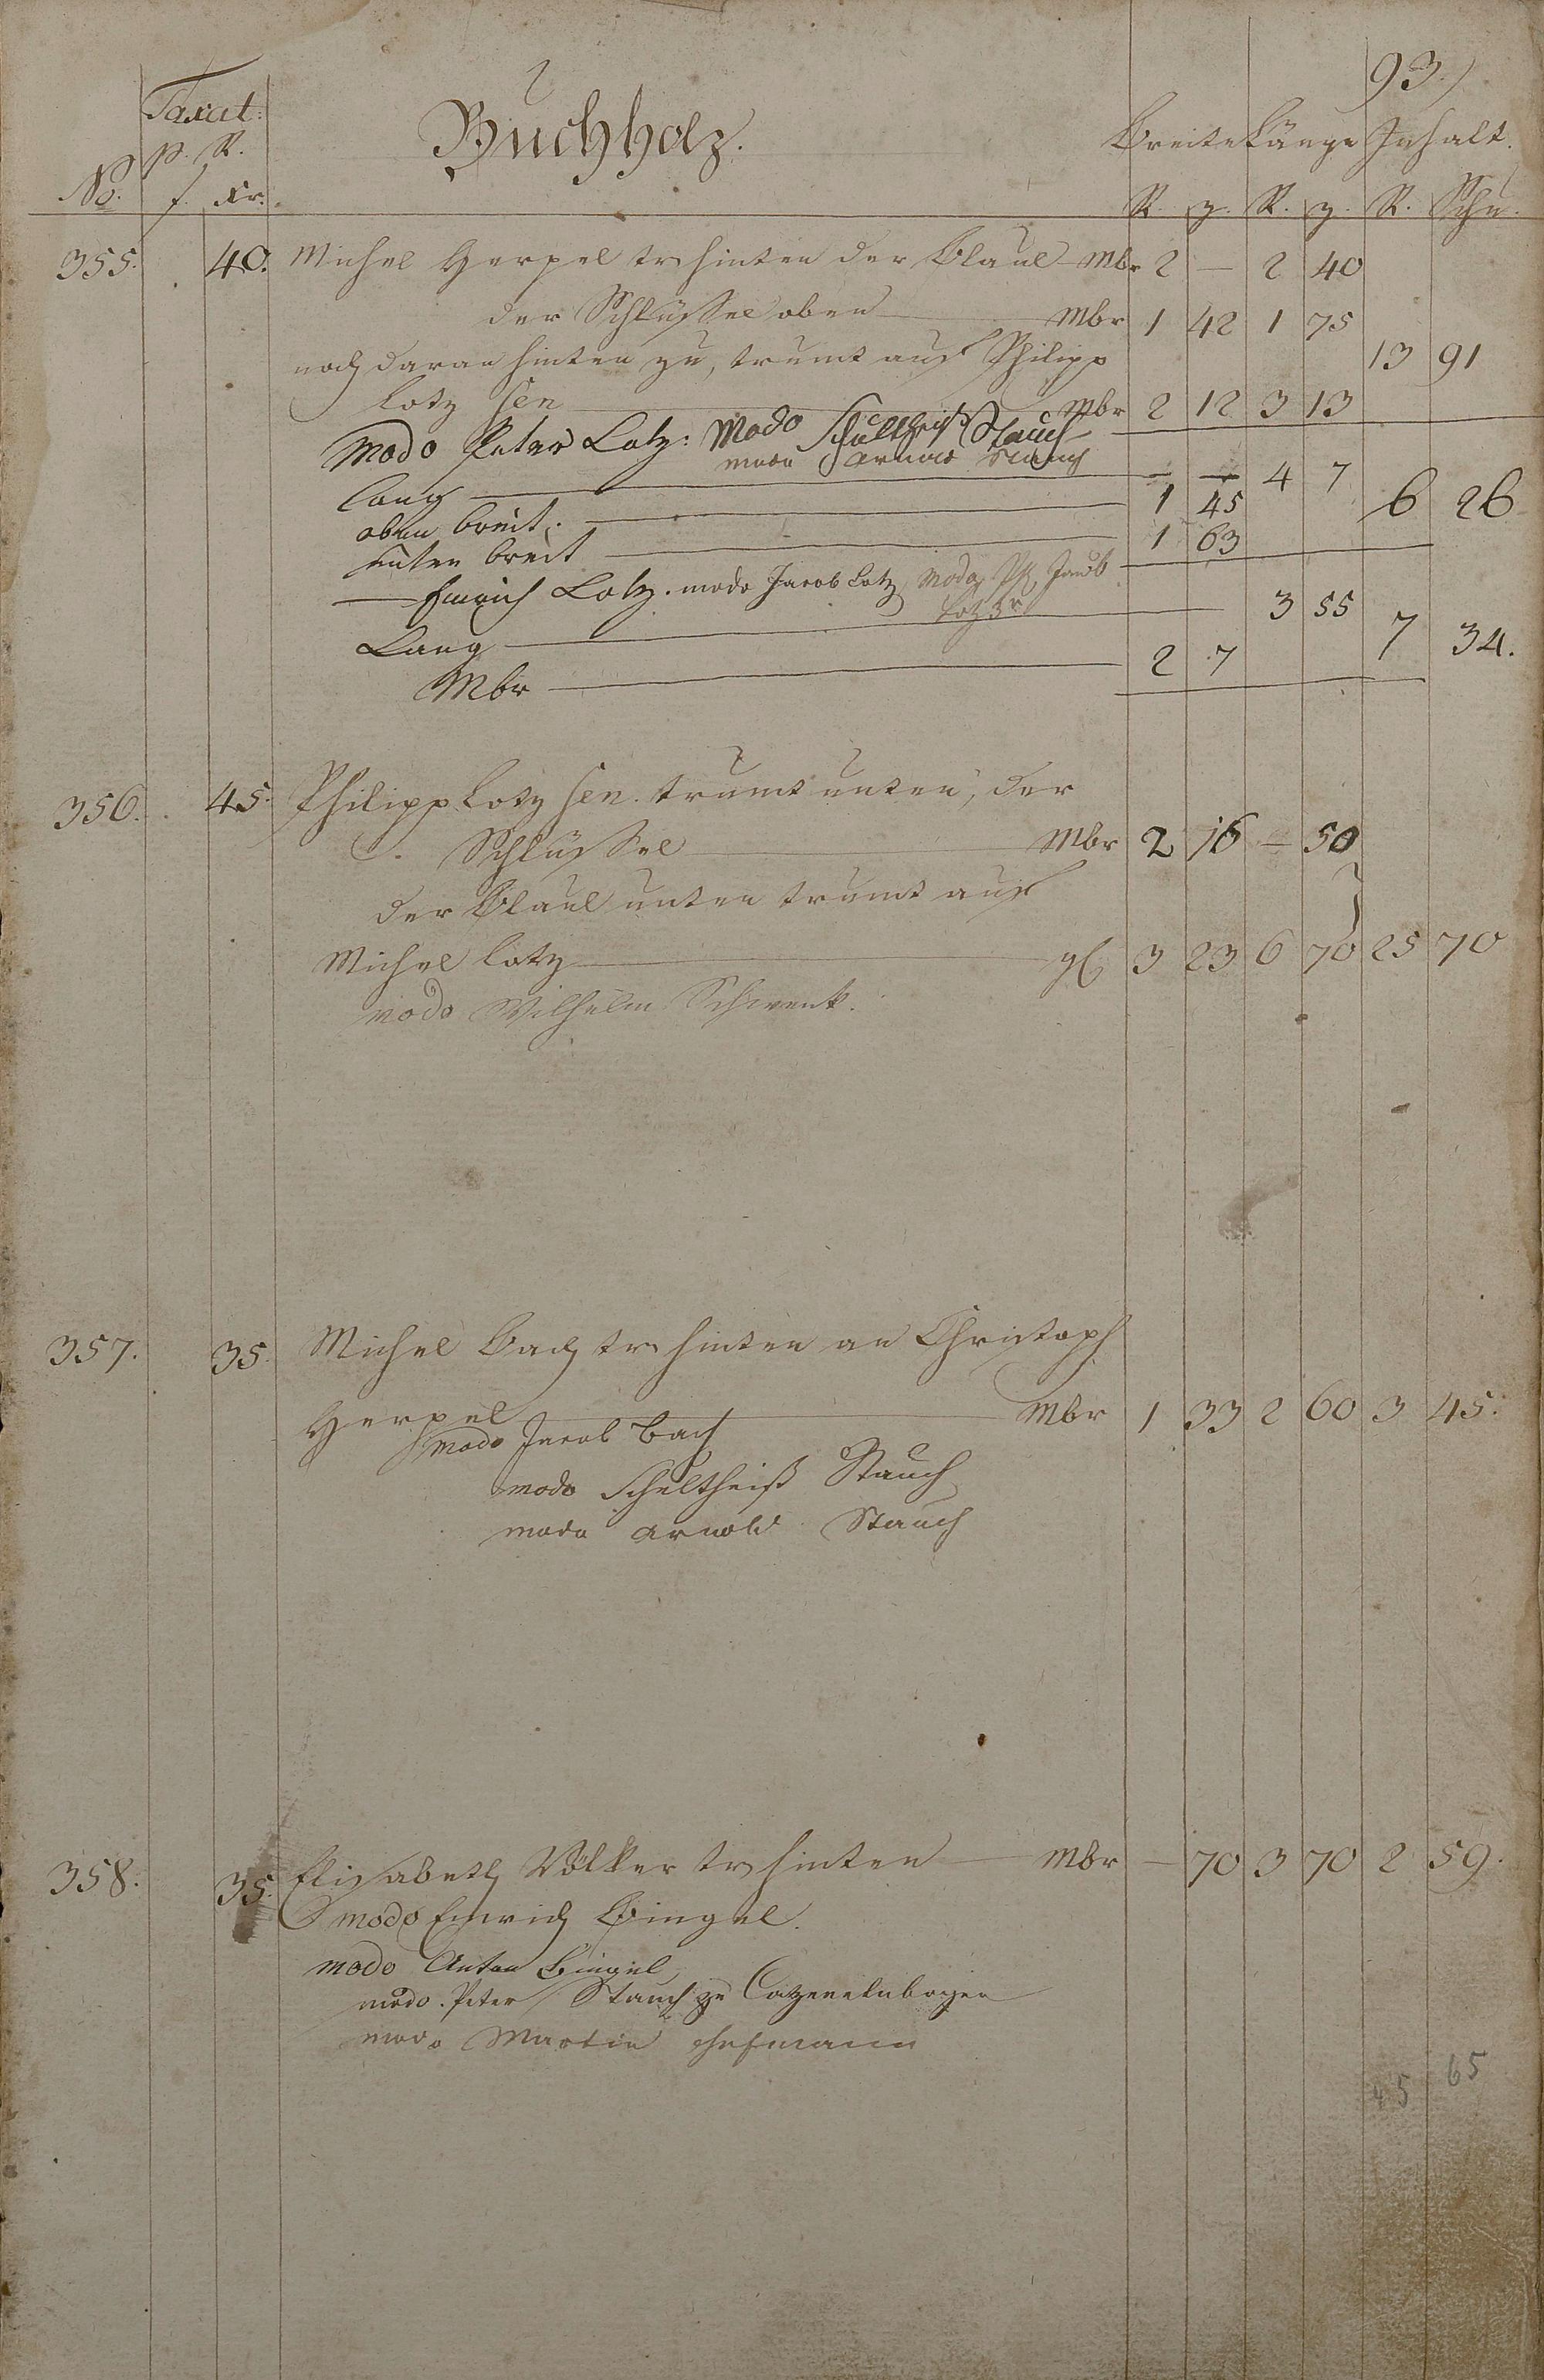 93.)
Taxat:
Buchholz.
Breite Länge Inhalt.
p. R.
No. f. Xr. R. z. R. z. R. Schu.
355. 40. Michel Herpel tr hinten der Blaul Mbr 2 — 2 40
der Schlüssel oben Mbr 1 42 1 75
noch daran hinten zu, trumt auf Philipp 13 91
Lotz sen Mbr 2 12 3 13
modo Peter Lotz: Modo Schultheiß Stauch
modo Arnold Stauch
Lang — — 4 7
oben breit. 1 45 6 26
unten breit 1 63
Emrich Lotz. modo Jacob Lotz Modo Ph. Jacob
Lotz 3r
Lang 3 55 7 34.
Mbr 2 7
356. 45. Philipp Lotz sen. trumt unten, der
Schlüssel Mbr 2 16 — 50
der Blaul unten trumt auf
Michel Lotz gl 3 23 6 70 25 70
modo Wilhelm Schwenk.
357. 35. Michel Bach tr hinten an Christoph
Herpel Mbr 1 33 2 60 3 45.
modo Jacob Bach
modo Schultheiß Stauch
modo Arnold Stauch
358. 35. Elisabeth Völker tr hinten Mbr — 70 3 70 2 59.
modo Emrich Bingel.
modo Anton Bingel
modo. Peter Stauch zu Catzenelnbogen
modo Martin
45 65